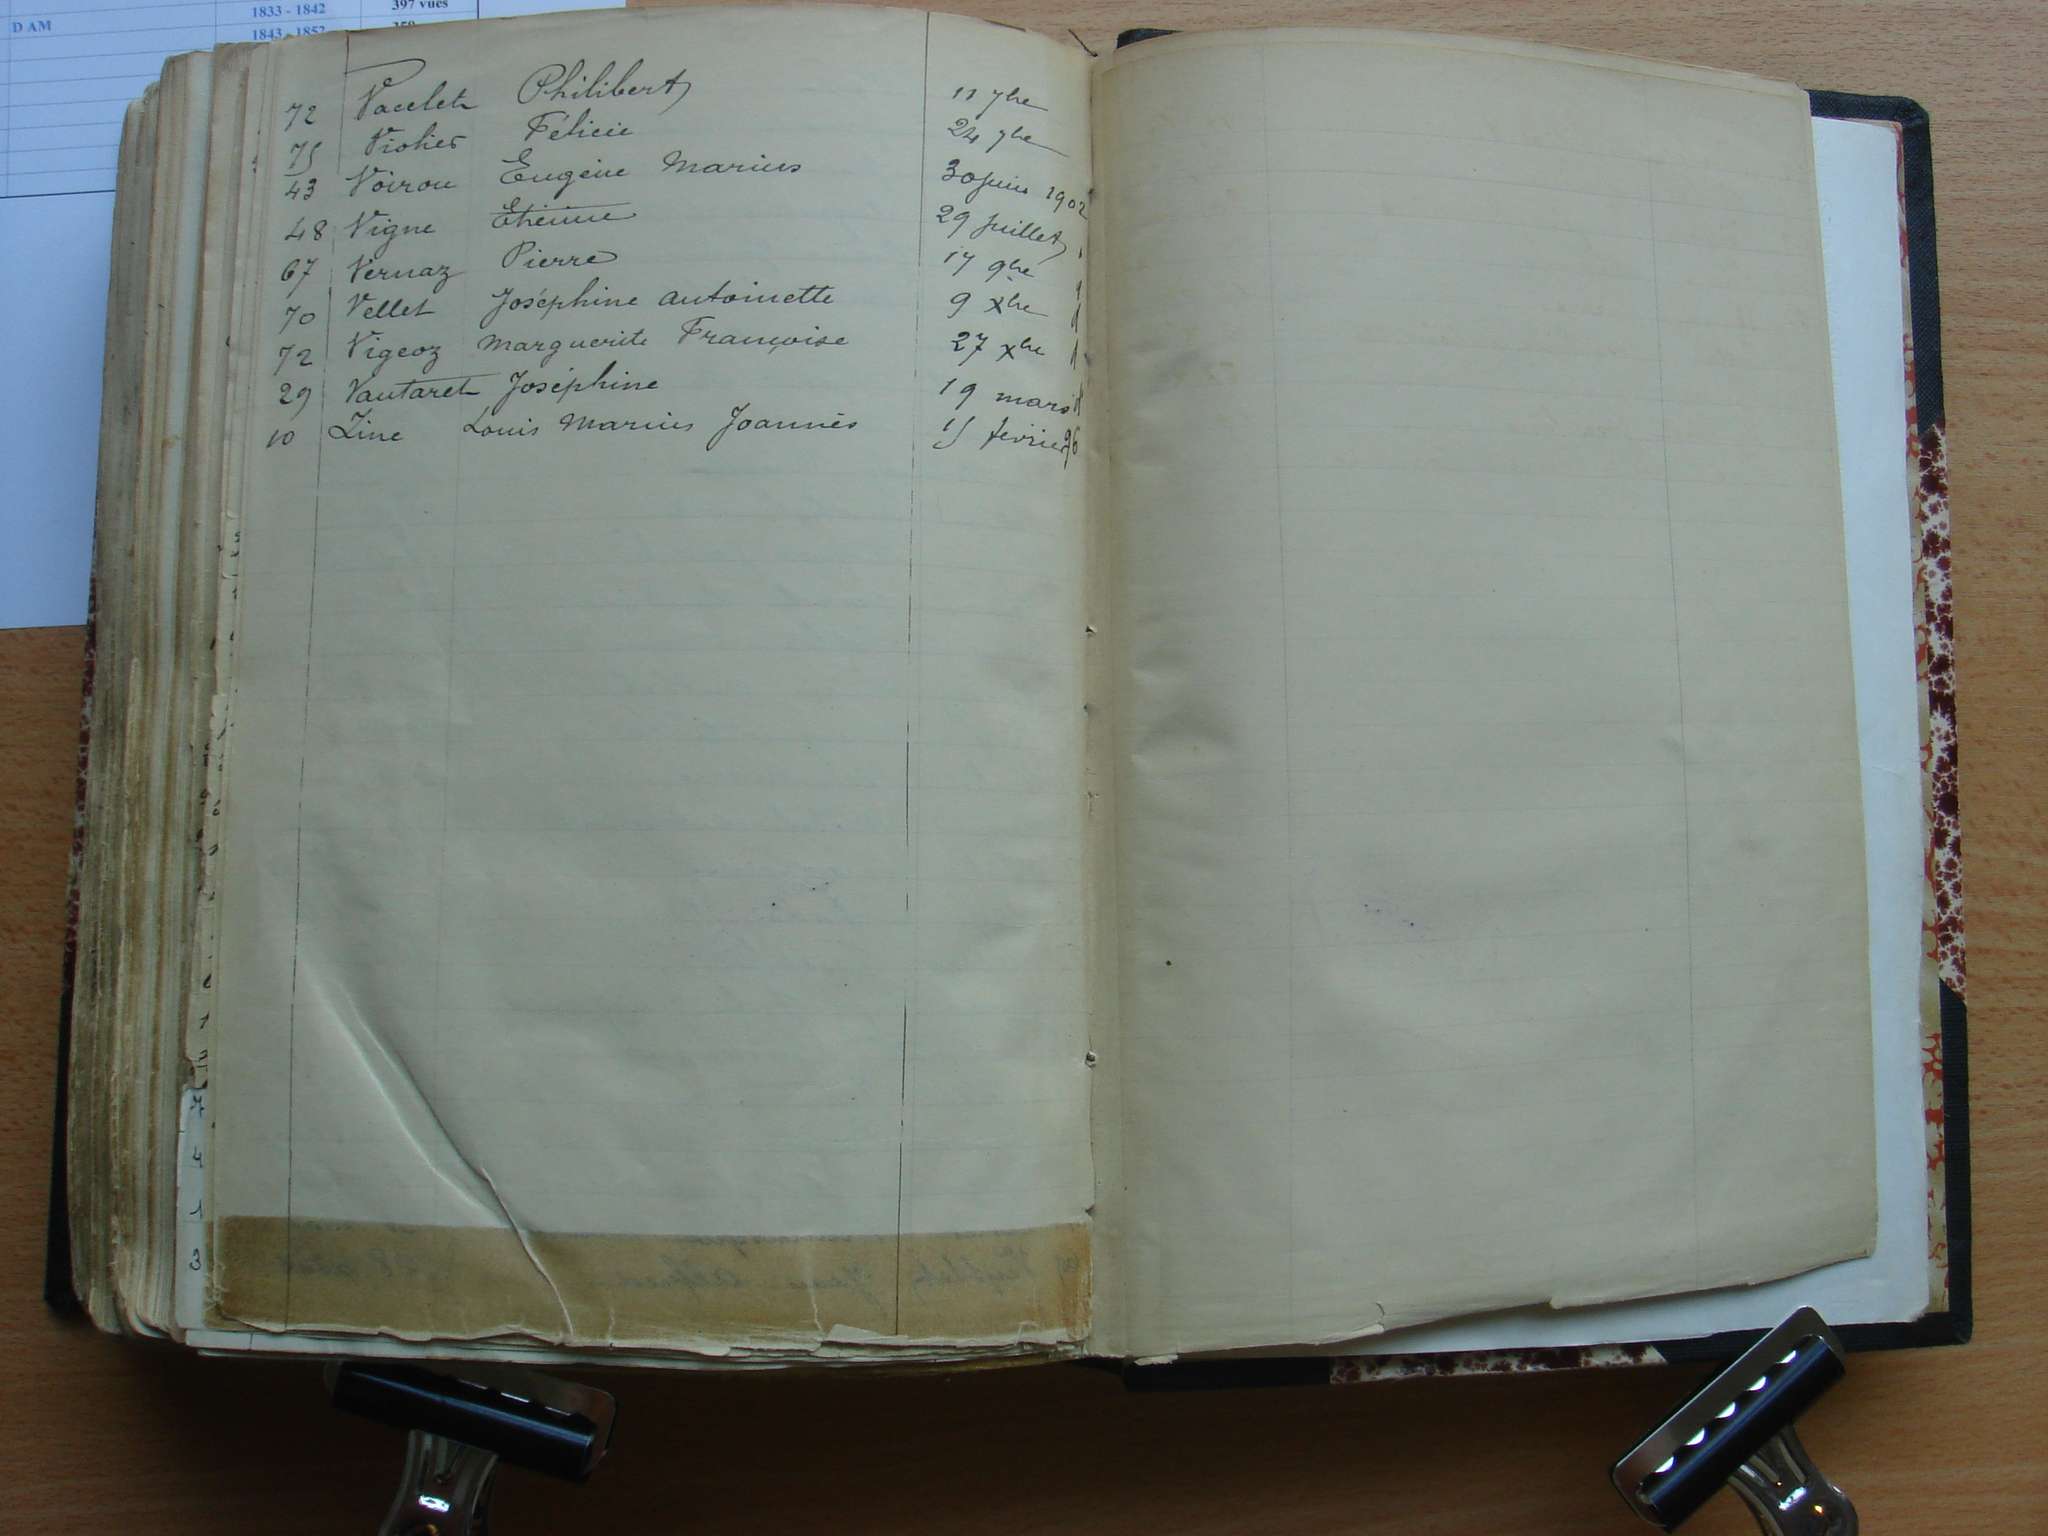 1833 - 1842 397 vues
D AM 1843 - 1852
72 Vacelet Philibert 11 7bre
75 Violier Félicie 24 7bre
43 Voiron Eugène Marius 30 juin 1902
48 Vigne Etienne 29 juillet
67 Vernaz Pierre 17 9bre
70 Vellet Joséphine Antoinette 9 Xbre
72 Vigeoz Marguerite Françoise 27 Xbre
29 Vautaret Joséphine 19 mars
10 Zine Louis Marius Joannès 15 février 96